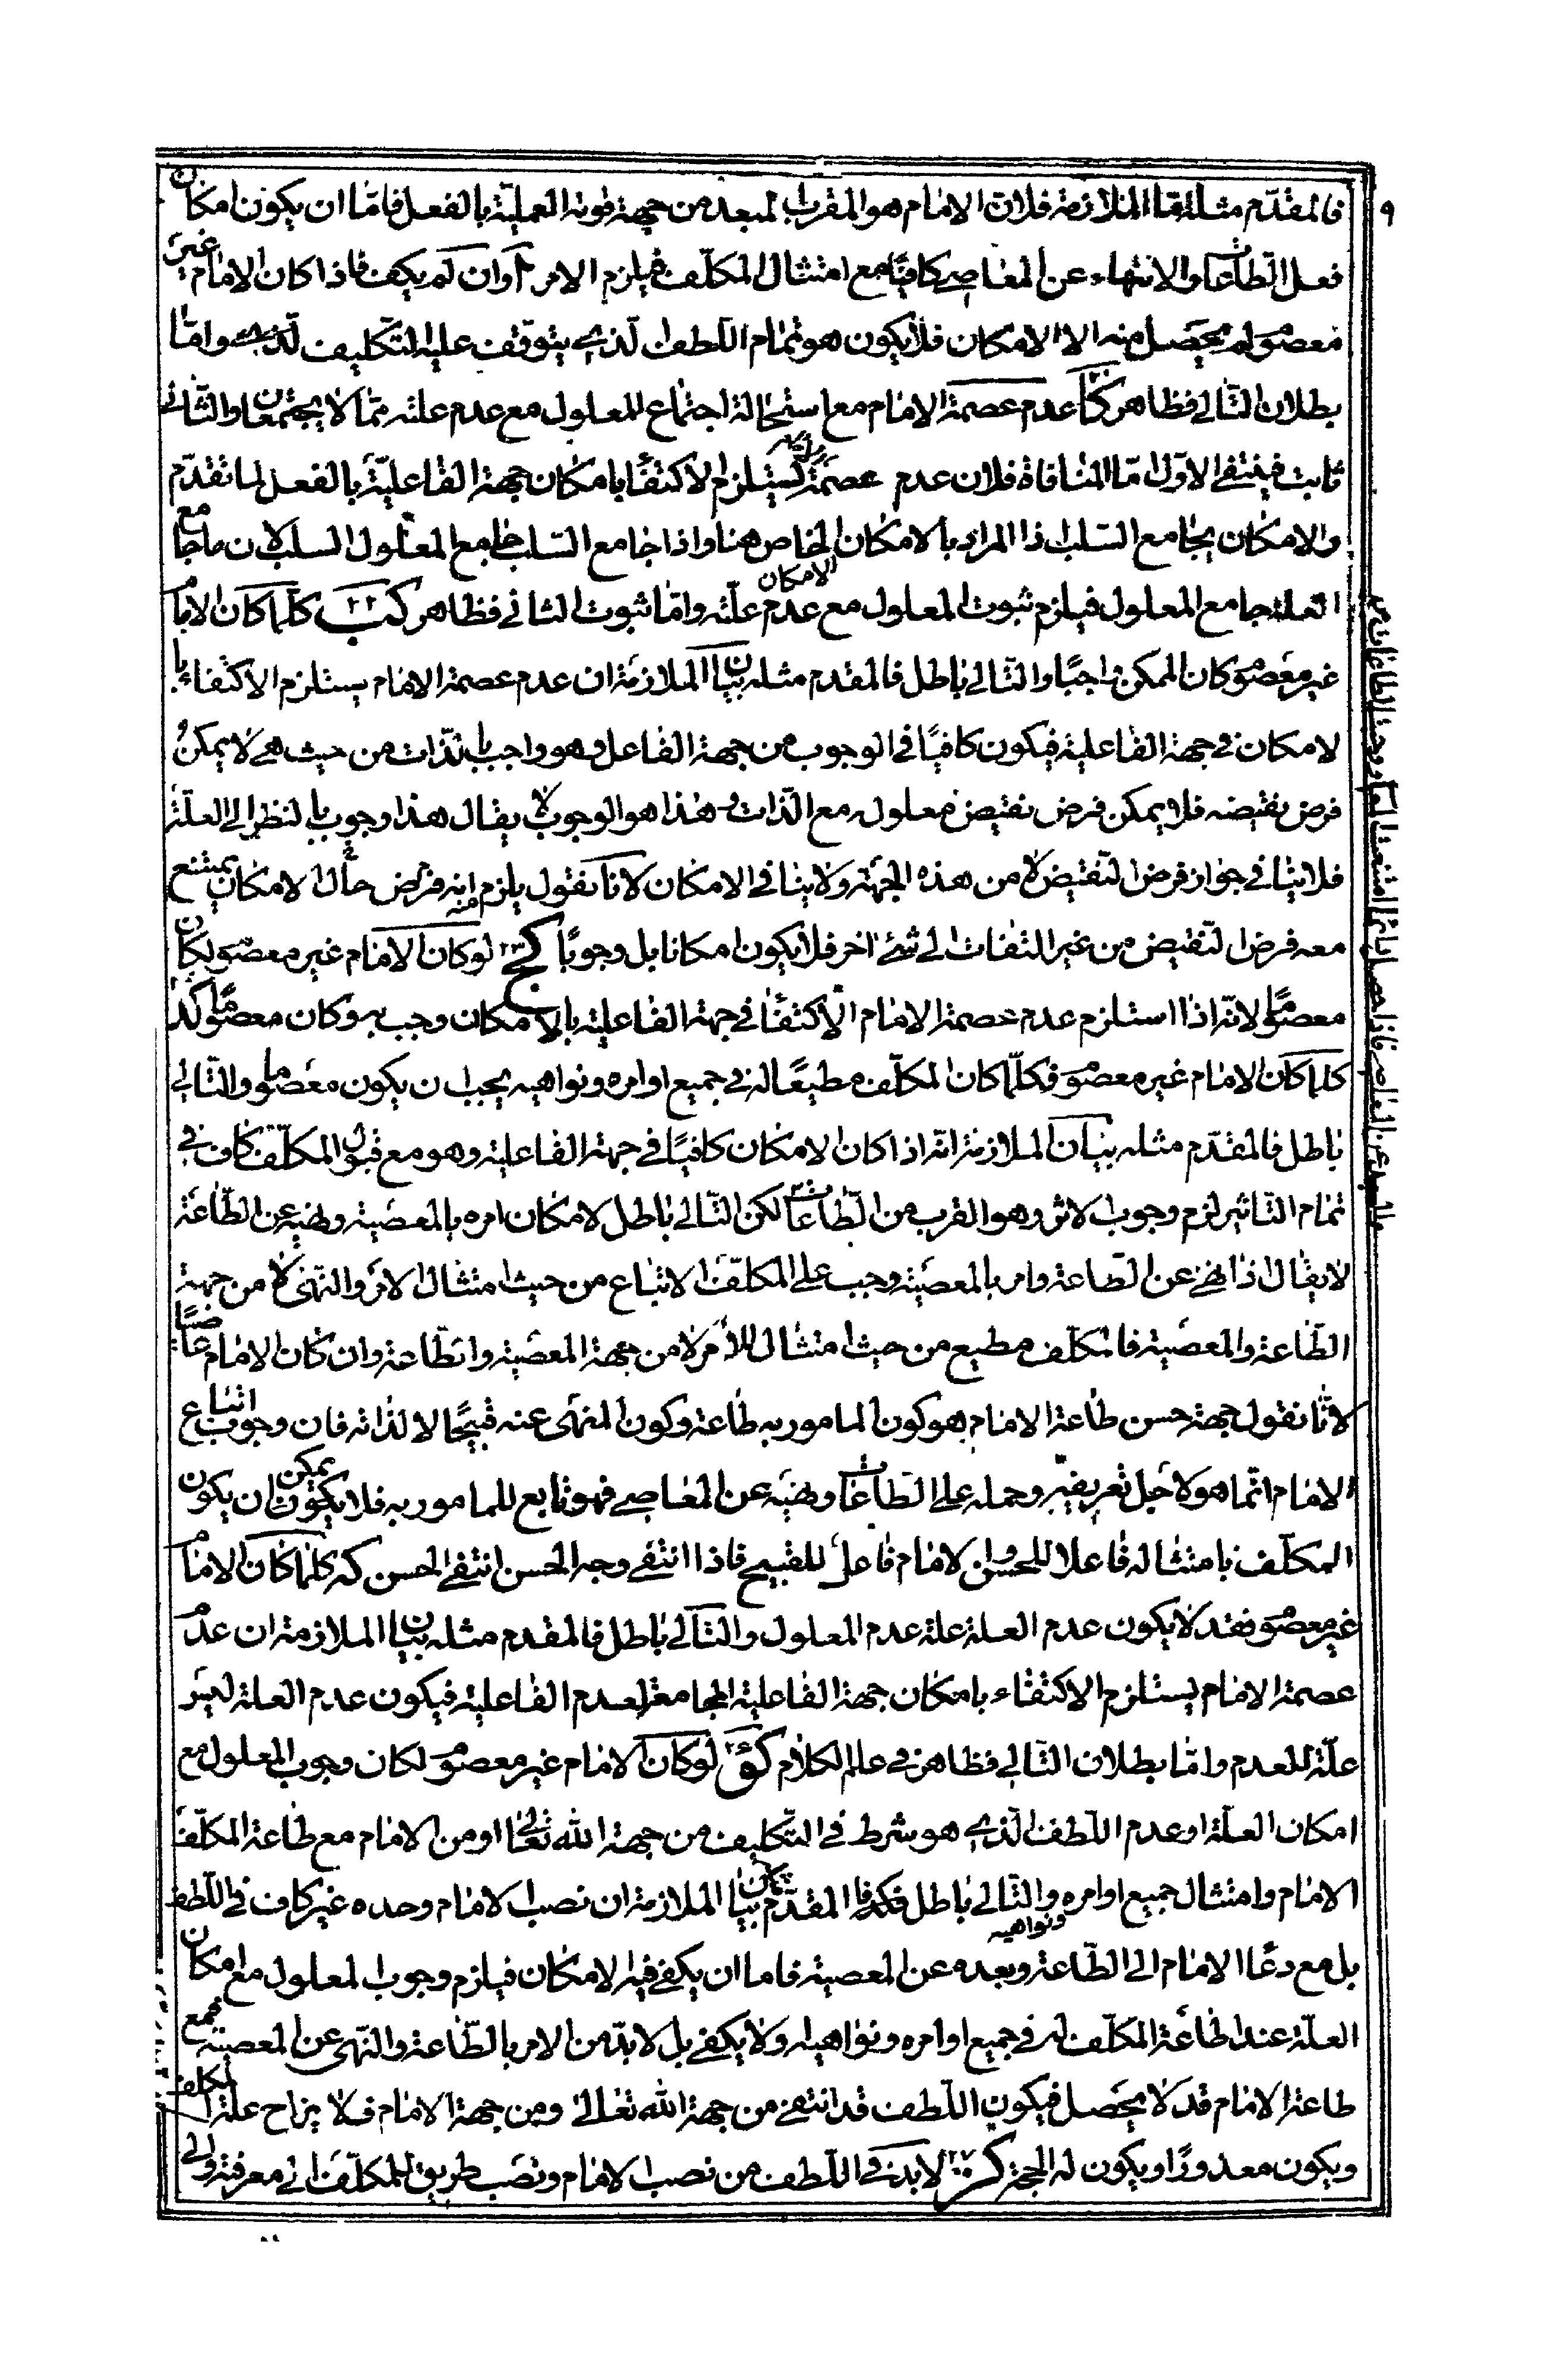 ٩
فالمقدّم مثله امّا الملازمة فلانّ الامام هو المقرّب المبعد من جهة قوته العملية بالفعل فامّا ان يكون امكان
فعل الطّاعات والانتهاء عن المعاصي كافيًا مع امتثال المكلّف فيلزم الامر آ وان لم يكف فاذا كان الامام غير
معصوم لم يحصل منه الا الامكان فلا يكون هو تمام اللطف الّذي يتوقّف عليه التكليف الّذي وامّا
بطلان التالي فظاهر كا ٢١ عدم عصمة الامام مع استحالة اجتماع المعلول مع عدم علته ممّا لا يجتمعان والثاني
ثابت فينتفي الاوّل امّا المنافاة فلان عدم عصمته يستلزم الاكتفاء بامكان جهة الفاعليّة بالفعل لما تقدّم
والامكان يجامع السّلب اذ المراد بالامكان الخاص هنا واذا جامع السّلب جامع المعلول السلب لان ما جامع
العلة جامع المعلول فيلزم ثبوت المعلول مع عدم الامكان علّته وامّا ثبوت الثاني فظاهر كب ٢٢ كلّما كان الامام
غير معصوم كان الممكن واجبًا والتّالي باطل فالمقدم مثله بيان الملازمة ان عدم عصمة الامام يستلزم الاكتفاء با
لامكان في جهة الفاعلية فيكون كافيًا في الوجوب من جهة الفاعل وهو واجب بالذّات من حيث هي لا يمكن
فرض نقيضه فلا يمكن فرض نقيض معلوله مع الذّات وهذا هو الوجوب لا يقال هذا وجوب بالنظر الى العلّة
فلا ينافي جواز فرض النّقيض لا من هذه الجهة ولا ينافي الامكان لانا نقول يلزم منه انه فرض حال الامكان يمتنع
معه فرض النّقيض من غير التفات الى شيء اخر فلا يكون امكانا بل وجوبًا كج ٢٣ لو كان الامام غير معصوم لكان
معصومًا لانّه اذا استلزم عدم عصمة الامام الاكتفاء في جهة الفاعلية بالامكان وجب به وكان معصومًا كد
كلما كان الامام غير معصوم فكلّما كان المكلّف مطيعًا له في جميع اوامره ونواهيه يجب ان يكون معصوما والتّالي
باطل فالمقدّم مثله بيان الملازمة انّه اذا كان الامكان كافيًا في جهة الفاعلية وهو مع قبول المكلّف كاف في
تمام التاثير لزم وجوب الاثر وهو القرب من الطّاعات لكن التّالي باطل لامكان امره بالمعصية ونهيه عن الطّاعة
لا يقال اذا نهى عن الطاعة وامر بالمعصية وجب على المكلّف الاتباع من حيث امتثال الامر والنّهي لا من جهة
الطّاعة والمعصية فالمكلّف مطيع من حيث امتثال الامر لا من جهة المعصية والطّاعة وان كان الامام عاصيًا
لانّا نقول جهة حسن طاعة الامام هو كون المامور به طاعة وكون المنهى عنه قبيحًا لا لذاته فان وجوب اتباع
الامام انّما هو لاجل تعريفه وحمله على الطّاعات ونهيه عن المعاصي فهو تابع للمامور به فلا يكون يمكن ان يكون
المكلّف بامتثاله فاعلا للحسن والامام فاعل للقبيح فاذا انتفى وجه الحسن انتفى الحسن كه كلما كان الامام
غير معصوم فقد لا يكون عدم العلة علة عدم المعلول والتّالي باطل فالمقدم مثله بيان الملازمة ان عدم
عصمة الامام يستلزم الاكتفاء بامكان جهة الفاعلية المجامعة لعدم الفاعلية فيكون عدم العلة ليس
علّة للعدم وامّا بطلان التّالي فظاهر في علم الكلام كو ٢٦ لو كان الامام غير معصوم لكان وجوب المعلول مع
امكان العلّة او عدم اللّطف الّذي هو شرط في التّكليف من جهة الله تعالى او من الامام مع طاعة المكلّف
الامام وامتثال جميع اوامره ونواهيه والتّالي باطل فكذا المقدّم بيان الملازمة ان نصب الامام وحده غير كاف في اللّطف
بل مع دعاء الامام الى الطّاعة وبعده عن المعصية فاما ان يكفي فيه الامكان فيلزم وجوب المعلول مع امكان
العلّة عند اطاعة المكلّف له في جميع اوامره ونواهيه ولا يكفي بل لا بدّ من الامر بالطّاعة والنّهى عن المعصية فمع
طاعة الامام قد لا يحصل فيكون اللّطف قد انتفى من جهة الله تعالى ومن جهة الامام فلا يزاح علة المكلف
ويكون معذورًا ويكون له الحجة كز ٢٧ لا بد في اللّطف من نصب الامام ونصب طريق للمكلّف الى معرفته والى